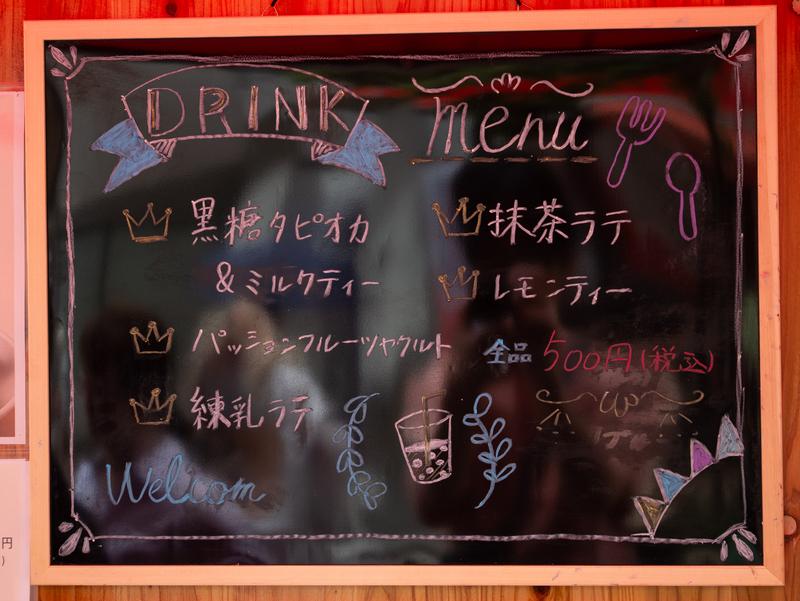 DRINK menu
黒糖タピオカ
&ミルクティー
パッションフルーツヤクルト
練乳ラテ
抹茶ラテ
レモンティー
全品 500円(税込)
up
Welcom
円
)